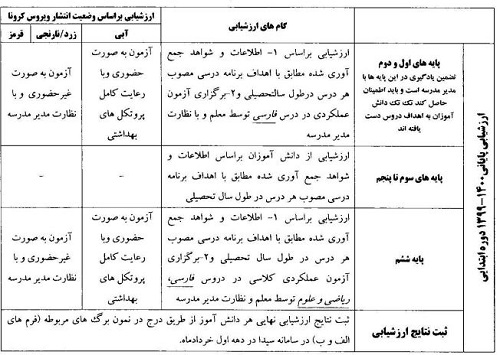 ارزشیابی براساس وضعیت انتشار ویروس کرونا
گام های ارزشیابی
آبی
زرد/نارنجی
قرمز
ارزشیابی پایانی ۱۴۰۰-۱۳۹۹ دوره ابتدایی
پایه های اول و دوم
تضمین یادگیری در این پایه ها با
مدیر مدرسه است و باید اطمینان
حاصل کند تک تک دانش
آموزان به اهداف دروس دست
یافته اند
ارزشیابی براساس ۱- اطلاعات و شواهد جمع
آوری شده مطابق با اهداف برنامه درسی مصوب
هر درس درطول سالتحصیلی و۲-برگزاری آزمون
عملکردی در درس فارسی توسط معلم و با نظارت
مدیر مدرسه
آزمون به صورت
حضوری وبا
رعایت کامل
پروتکل های
بهداشتی
آزمون به صورت
غیرحضوری و با
نظارت مدیر مدرسه
پایه های سوم تا پنجم
ارزشیابی از دانش آموزان براساس اطلاعات و
شواهد جمع آوری شده مطابق با اهداف برنامه
درسی مصوب هر درس در طول سال تحصیلی
پایه ششم
ارزشیابی براساس ۱- اطلاعات و شواهد جمع
آوری شده مطابق با اهداف برنامه درسی مصوب
هر درس در طول سال تحصیلی و۲-برگزاری
آزمون عملکردی کلاسی در دروس فارسی،
ریاضی و علوم توسط معلم و نظارت مدیر مدرسه
آزمون به صورت
حضوری وبا
رعایت کامل
پروتکل های
بهداشتی
آزمون به صورت
غیرحضوری و با
نظارت مدیر مدرسه
ثبت نتایج ارزشیابی
ثبت نتایج ارزشیابی نهایی هر دانش آموز از طریق درج در نمون برگ های مربوطه (فرم های
الف و ب) در سامانه سیدا در دهه اول خردادماه.